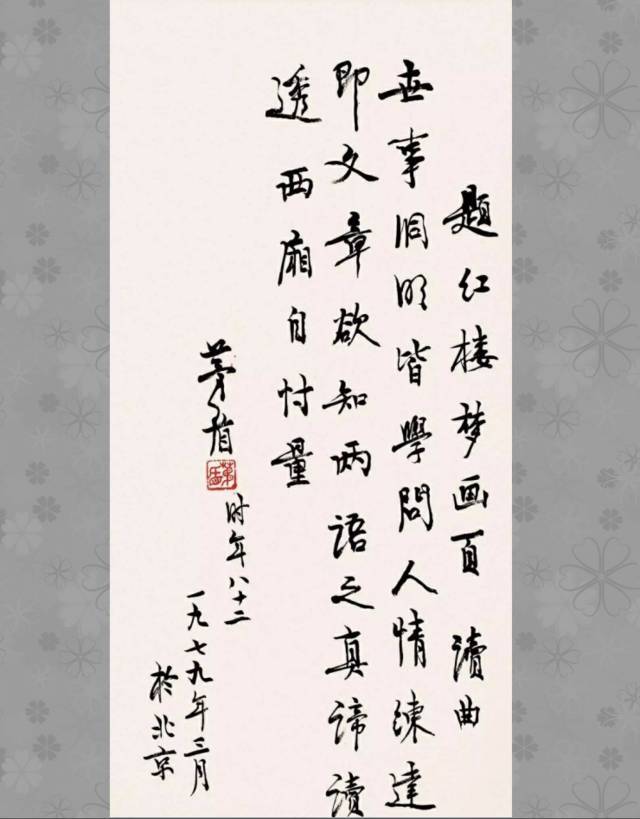 题红楼梦画頁 讀曲
世事洞明皆學問人情練達
即文章欲知两语之真谛讀
透西廂自忖量
茅盾
茅盾
时年八十二
一九七九年三月
於北京